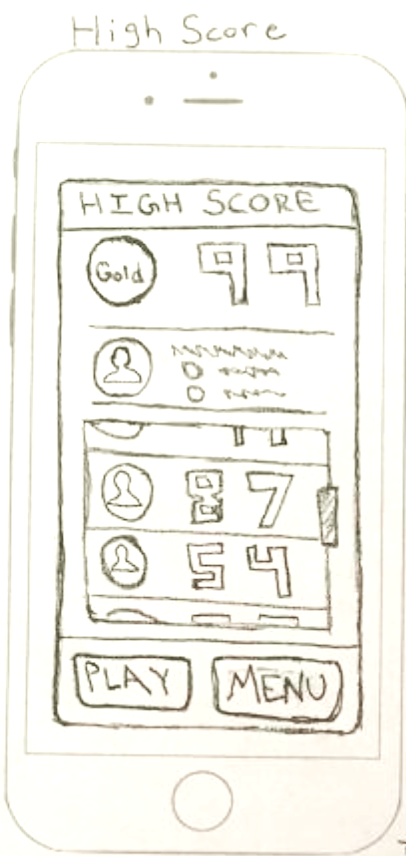 High Score
HIGH SCORE
Gold 99
87
54
PLAY MENU